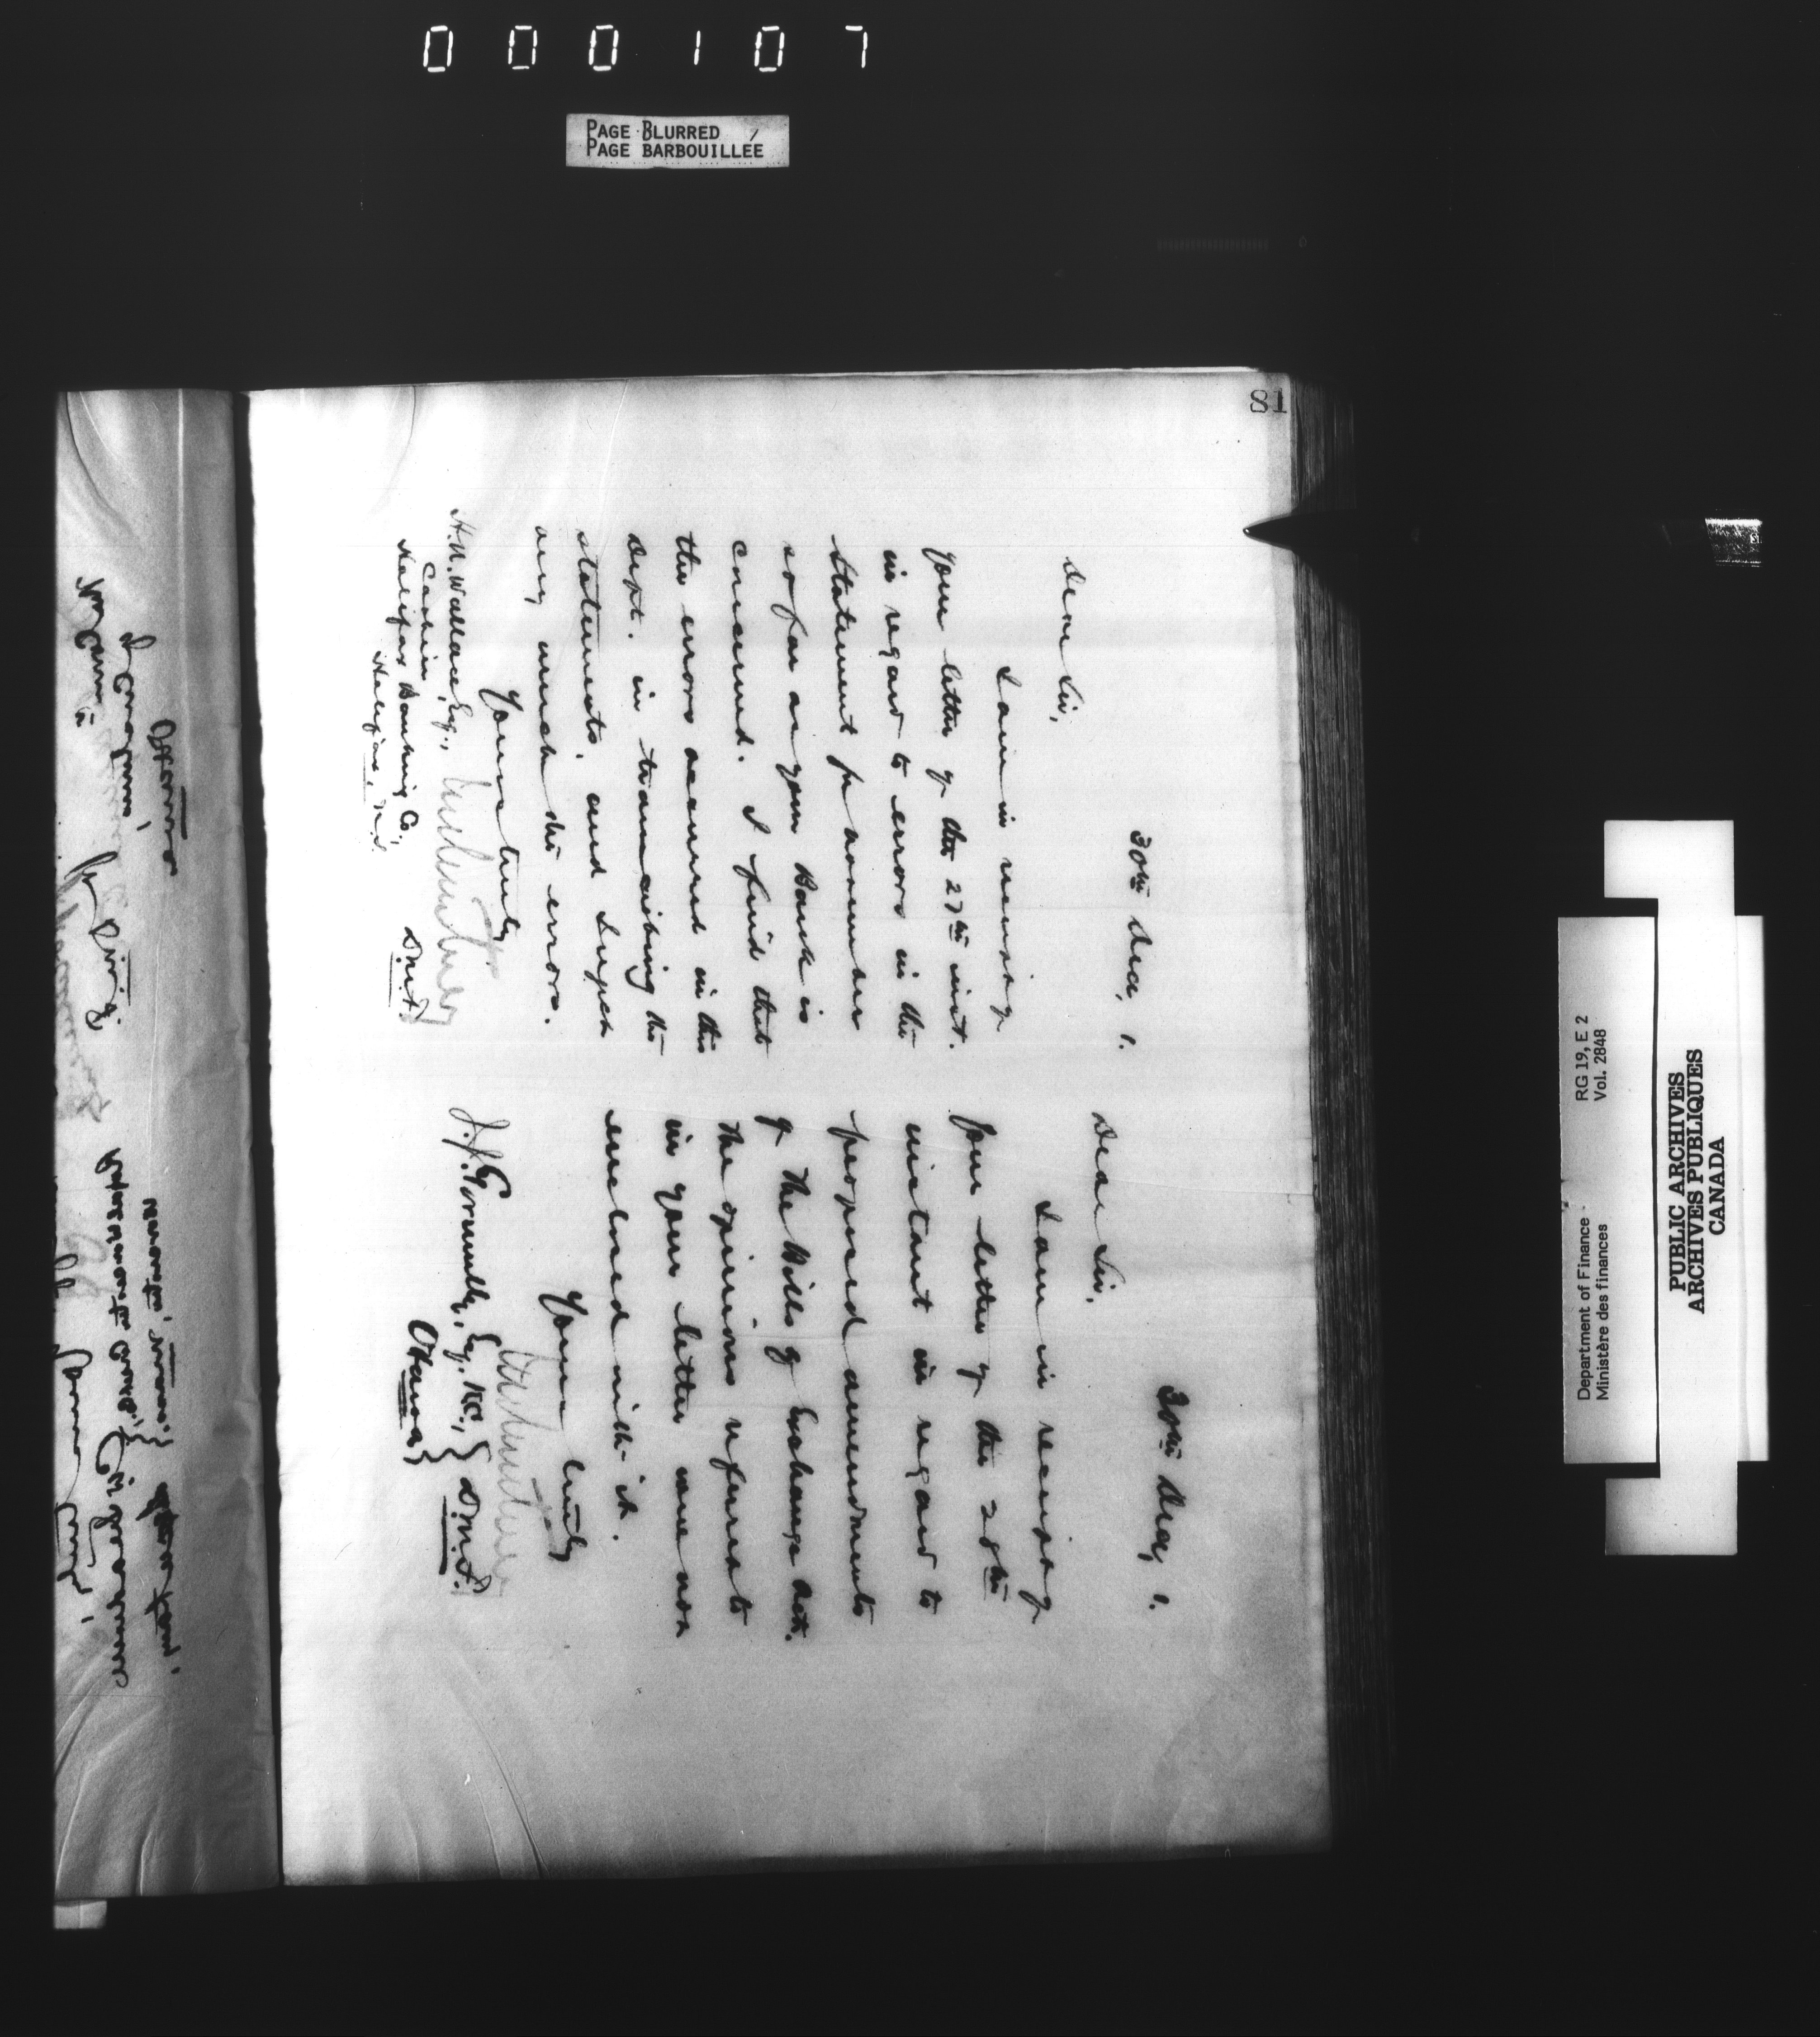 000107
PAGE BLURRED
PAGE BARBOUILLÉE
81
30th Dec, 1.
Dear Sir,
I am in receipt of
your letter of the 27th inst.
in regard to errors in the
statement for November
so far as your Bank is
concerned. I find that
the errors occurred in this
Dept. in transcribing the
statements, and I regret
very much the errors.
Yours truly
H.N. Wallace, Esq.,
Cashier,
Halifax Banking Co.,
Halifax, N.S.
D.M.F.
30th Dec, 1.
Dear Sir,
I am in receipt of
your letter of the 28th
instant in regard to
proposed amendments
of the Bills of Exchange Act.
The opinions referred to
in your letter were not
enclosed with it.
Yours truly
J.J. Gormully, Esq., K.C.,
Ottawa
D.M.F.
Department of Finance
Ministère des finances
RG 19, E 2
Vol. 2848
PUBLIC ARCHIVES
ARCHIVES PUBLIQUES
CANADA